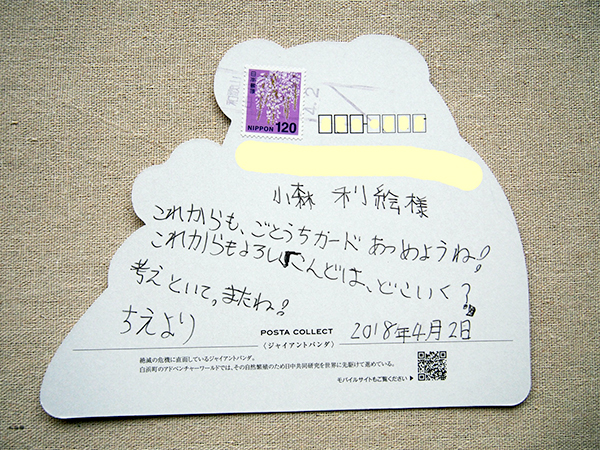 日本郵便
NIPPON 120
和歌山
小森 利絵様
これからも、ごとうちカード あつめようね!!
これからもよろし こんどは、どこいく?
考えといて。またね!!
ちえより
2018年4月2日
POSTA COLLECT
〈ジャイアントパンダ〉
絶滅の危機に直面しているジャイアントパンダ。
白浜町のアドベンチャーワールドでは、その自然繁殖のため日中共同研究を世界に先駆けて進めている。
モバイルサイトもご覧ください ▶